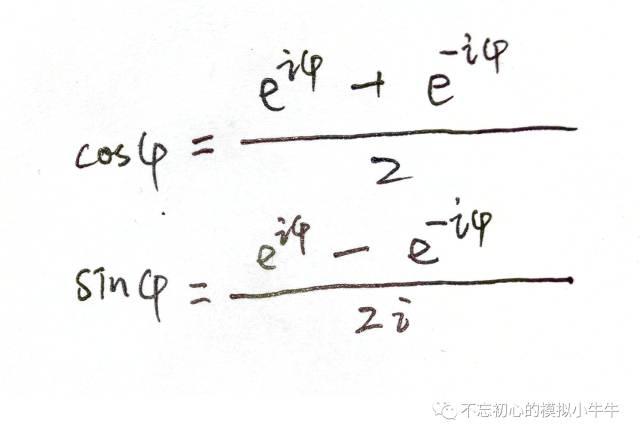 cosφ = (e^{iφ} + e^{-iφ}) / 2
sinφ = (e^{iφ} - e^{-iφ}) / 2i
不忘初心的模拟小牛牛